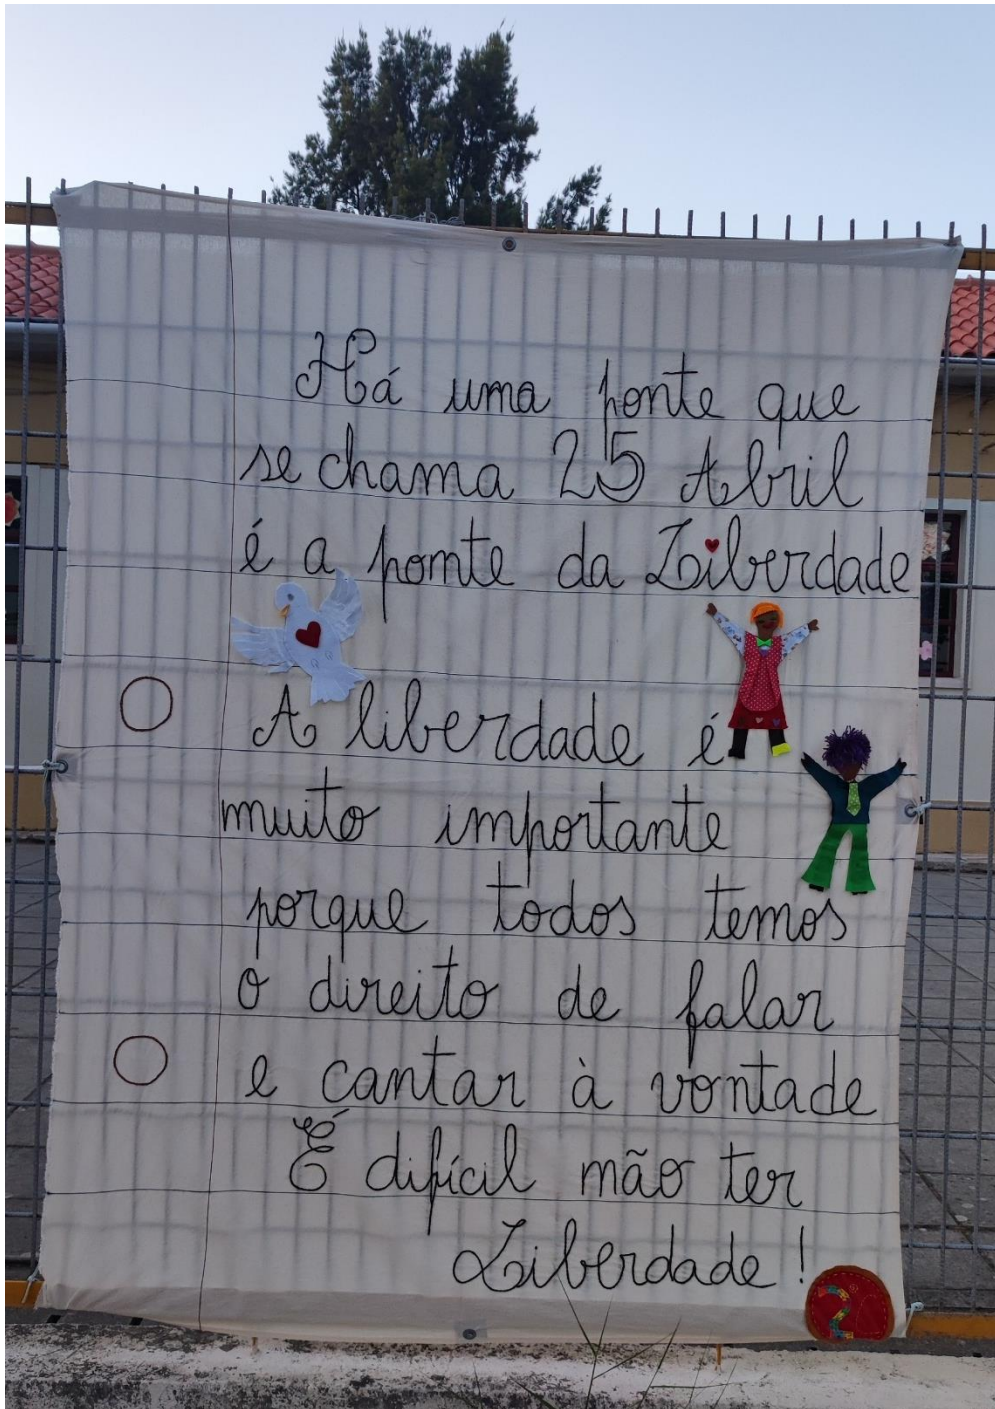 Há uma ponte que
se chama 25 Abril
é a ponte da Liberdade
A liberdade é
muito importante
porque todos temos
o direito de falar
e cantar à vontade
É difícil não ter
Liberdade!
2